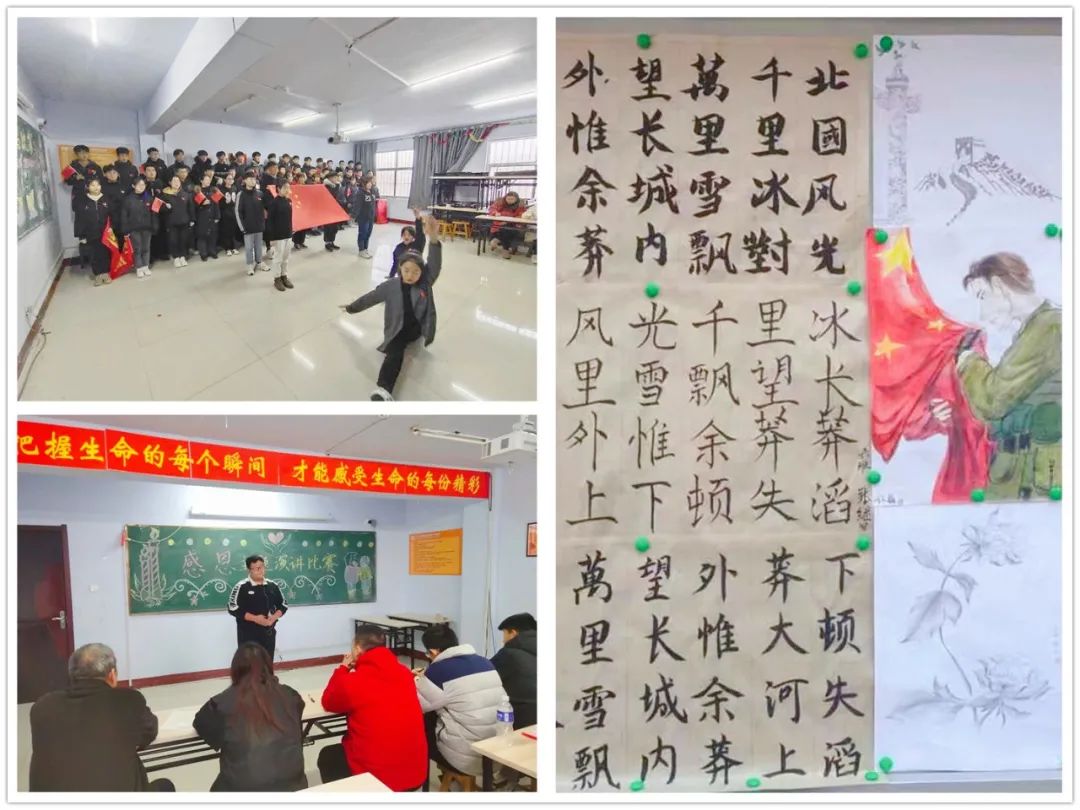 把握生命的每个瞬间 才能感受生命的每份精彩
感恩
演讲比赛
北國风光
千里冰對
萬里雪飘
望长城内
外惟余莽
冰长莽滔
里望莽失
千飘余顿
光雪惟下
风里外上
下顿失滔
莽大河上
外惟余莽
望长城内
萬里雪飘